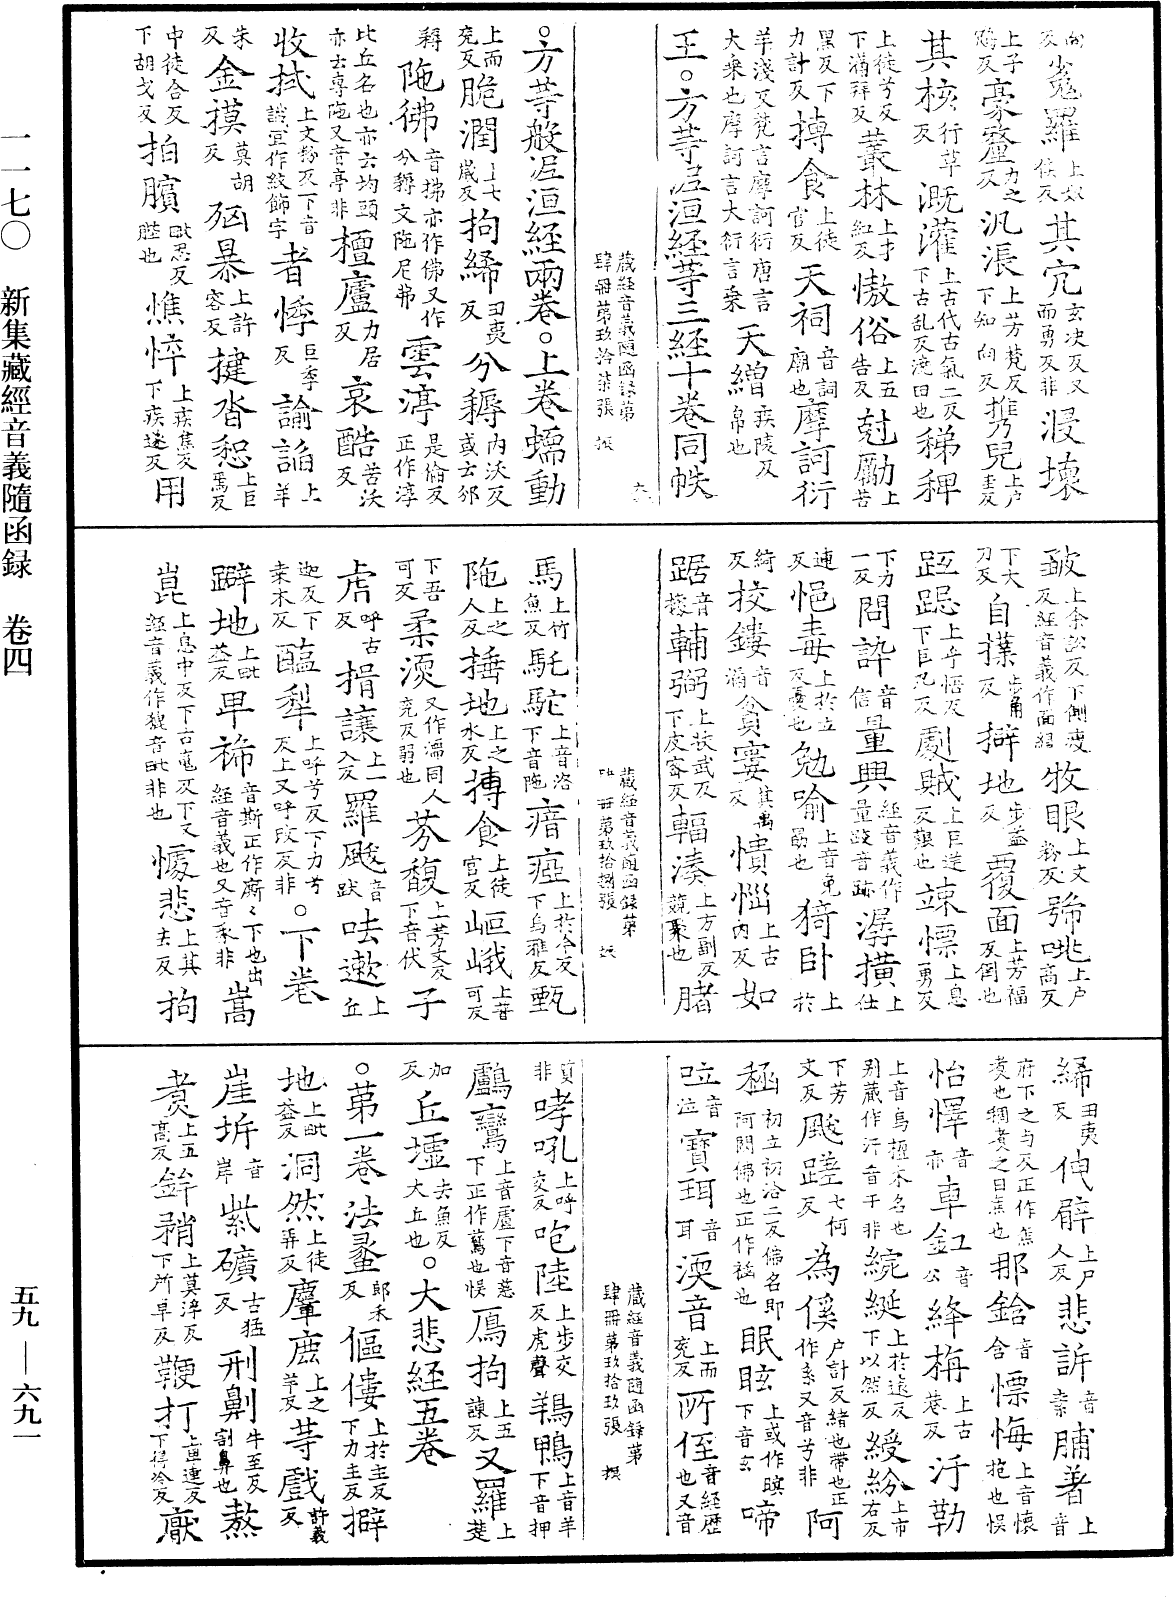 一一七〇 新集藏經音義隨函録 卷四
五九—六九一
向反蒐羅上㪽俟反其宂玄决反又而勇反非浸壞
上子鴆反豪釐力之反汎漲上芳梵反下知向反㩦兒上户圭反
其核行革反溉灌上古代古氣二反下古乱反澆田也稊稗
上徒兮反下蒲拜反叢林上才紅反慠俗上五告反尅勵上苦
黑反下力計反摶食上徒官反天祠音詞廟也摩訶衍
羊淺反梵言摩訶衍唐言大乗也摩訶言大衍言乗天繒疾陵反帛也
王。方等泥洹經等三經十卷同帙
藏經音義隨函録第肆冊第玖拾柒張
。方等般泥洹經兩卷。上卷蠕動
上而兖反脆潤上七嵗反拘絺丑夷反分耨內沃反或云邠
耨陁彿音拂亦作佛又作分耨文陁尼弗雲渟是倫反正作淳
比丘名也亦云均頭亦云專陁又音亭非檀廬力居反哀酷苦沃反
收拭上文粉反下音識宜作紋飾字者悸巨季反諭諂上羊
朱反金摸莫胡反㓙暴上許容反揵沓惒上巨焉反
中徒合反下胡戈反拍臏毗忍反䏶也憔悴上疾焦反下疾遂反用
皺上余訟反下側瘦反經音義作面縐牧眼上文粉反號咷上户高反
下大刀反自撲步角反擗地步益反覆面上芳福反倒也
跹跽上乎悟反下巨几反劇賊上巨逆反艱也竦慓上息勇反
下力一反問訊音信量興經音義作量跛音跡潺撗上仕
連反悒毒上於立反憂也勉喻上音免勗也猗卧上於
綺反挍鏤音漏貧寠其禹反憒惱上古內反如
踞音據輔弼上扶武反下皮客反輻湊上方副反競聚也腤
馬上竹魚反馲駝上音洛下音陁瘖瘂上於今反下烏雅反甄
陁上之人反捶地上之水反摶食上徒官反岠峨上音可反
下吾可反柔渜又作濡同人兖反弱也芬馥上芳文反下音伏子
虖上呼古反揖讓上一入反羅颰音跋呿漱上丘
迦反下桒木反醯犁上呼兮反下力兮反上又呼改反非。下卷
躃地上毗益反㽝㭉音斯正作廝々下也出經音義也又音豕非嵩
崑上息中反下古䰟反下又經音義作貔音毗非也懅悲上其去反拘
絺丑夷反伸辟上户人反悲訴音素脯著上音
府下之与反正作煑䔍也稠䔍之曰煑也那鋡音含慓悔上音懷抱也悮
怡懌音亦車釭工音公絳栴上古巷反汙勒
上音烏極木名也别藏作汗音干非綩綖上於遠反下以然反綬紛上市右反
下芳文反颰蹉七何反為傒户計反緒也帶也正作系又音兮非阿
䅥初立初洽二反佛名即阿閦佛也正作䅥也眠眩上或作瞑下音玄啼
㕸音泣寶珥音耳渜音上而兖反所侄音經歴也又音
㝴非哮吼上呼交反咆陸上步交反虎聲鵝鴨上音羊下音押
鸕鸞上音盧下音慈下正作鷀也悮鴈拘上五諫反又羅上莛
加反丘墟去魚反大丘也。大悲經五卷
。第一卷法蠡郎禾反傴僂上於主反下力主反擗
地上毗益反洞然上徒弄反麞鹿上之羊反等戲許義反
崖㘸音岸紫礦古猛反刑劓牛至反割鼻也熬
煑上五高反鉾矟上莫浮反下所卓反鞭打上卑連反下得冷反厭